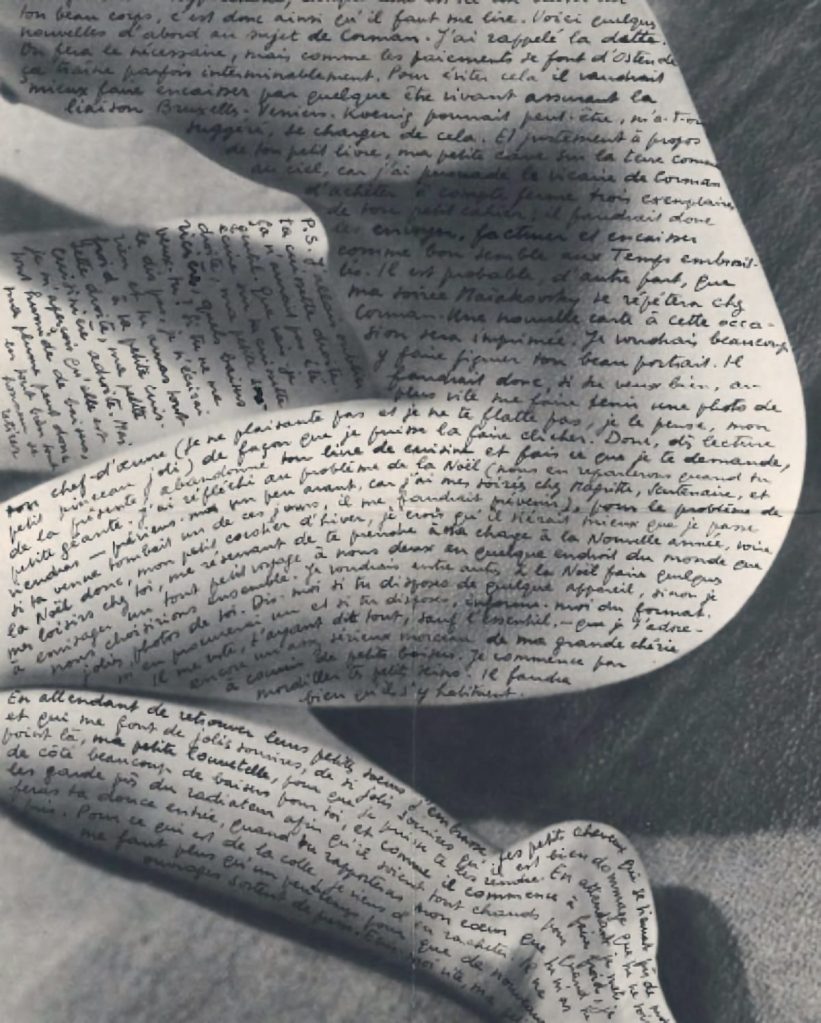 ton beau corps, c'est donc ainsi qu'il faut me lire. Voici quelques
nouvelles d'abord au sujet de Corman. J'ai rappelé la dette.
On fera le nécessaire, mais comme les paiements se font d'Ostende
ça traîne parfois interminablement. Pour éviter cela il vaudrait
mieux faire encaisser par quelque être vivant assurant la
liaison Bruxelles-Verviers. Koenig pourrait peut-être, m'a-t-on
suggéré, se charger de cela. Et justement à propos
de ton petit livre, ma petite caille sur la terre comme
au ciel, car j'ai persuadé le vicaire de Corman
d'acheter à compte ferme trois exemplaires
de ton petit cahier; il faudrait donc
le envoyer, facturer et encaisser
comme bon semble aux Temps
Il est probable d'autre part, que
ma soirée Maïakovsky se répétera chez
Corman. Une nouvelle carte à cette occa-
sion sera imprimée. Je voudrais beaucoup
y faire figurer ton beau portrait. Il
faudrait donc, si tu veux bien, au
plus vite me faire tenir une photo de
ton chef-d'œuvre (je ne plaisante pas et je ne te flatte pas, je le pense, mon
petit pinceau joli) de façon que je puisse la faire clicher. Donc, dis lecture
de la présente abandonne ton livre de cuisine et fais ce que je te demande,
petite géante. J'ai réfléchi au problème de la Noël (nous en reparlerons quand tu
viendras — préviens-moi un peu avant, car j'ai mes soirées chez Magritte, Scutenaire, et
si ta venue tombait un de ces jours, il me faudrait prévenir), pour le problème de
la Noël donc, mon petit coustier d'hiver, je crois qu'il siérait mieux que je passe
mes loisirs chez toi, me réservant de te prendre à ma charge à la Nouvelle année, voire
à envisager un tout petit voyage à nous deux en quelque endroit du monde que
nous choisirions ensemble. Je voudrais entre autres à la Noël faire quelques
jolies photos de toi. Dis-moi si tu disposes de quelque appareil, sinon je
m'en procurerai un et si tu disposes, informe-moi du format.
Il me reste, t'ayant dit tout, sauf l'essentiel, — que je t'adore —
encore un assez sérieux morceau de ma grande chérie
à couvrir de petits baisers. Je commence par
mordiller tes petits seins. Il faudra
bien qu'il s'y habituent.
P.S. J'allais oublier
ta cuissette droite.
Ça n'aurait pas été
gentil. Que vais-je
écrire sur ta cuissette
droite, ma petite
Quels baisers
veux-tu? Si tu ne me
le dis pas, je n'écrirai
rien et tu auras tout
froid à ta petite cuis-
sette droite, ma petite
cuisinière adroite. Mais
je m'aperçois qu'elle est
tout humide de baisers,
ma plume peut donc
en tout bien tout
honneur se
retirer.
En attendant de retrouver leurs petits sœurs d'en
et qui me font de jolis sourires, de si jolis sourires qu'il est bien dommage que tu ne
point là, ma petite louvetelle, pour que je puisse te les rendre. En attendant je mets
de côté beaucoup de baisers pour toi, et comme il commence à faire froid, je
les garde près du radiateur afin qu'ils soient tout chauds pour quand tu
feras ta douce entrée, quand tu rapporteras mon cœur que tu m'as
pris. Pour ce qui est de la colle, je viens d'en racheter. Il ne
me faut plus qu'un
ouvrages sortent de presse. Écris-moi vite, ma
tes petits cheveux qui se